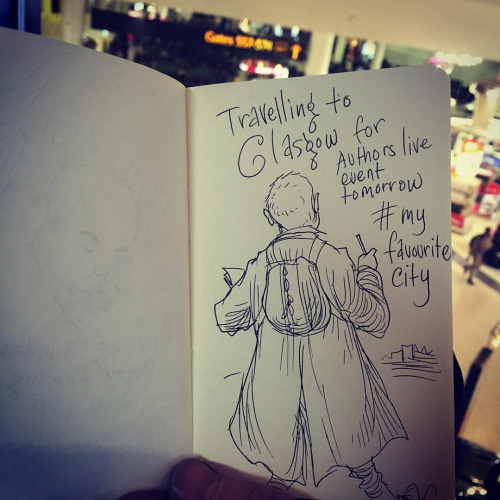 Gates
Travelling to
Glasgow for
Authors live
event
tomorrow
#my
favourite
city